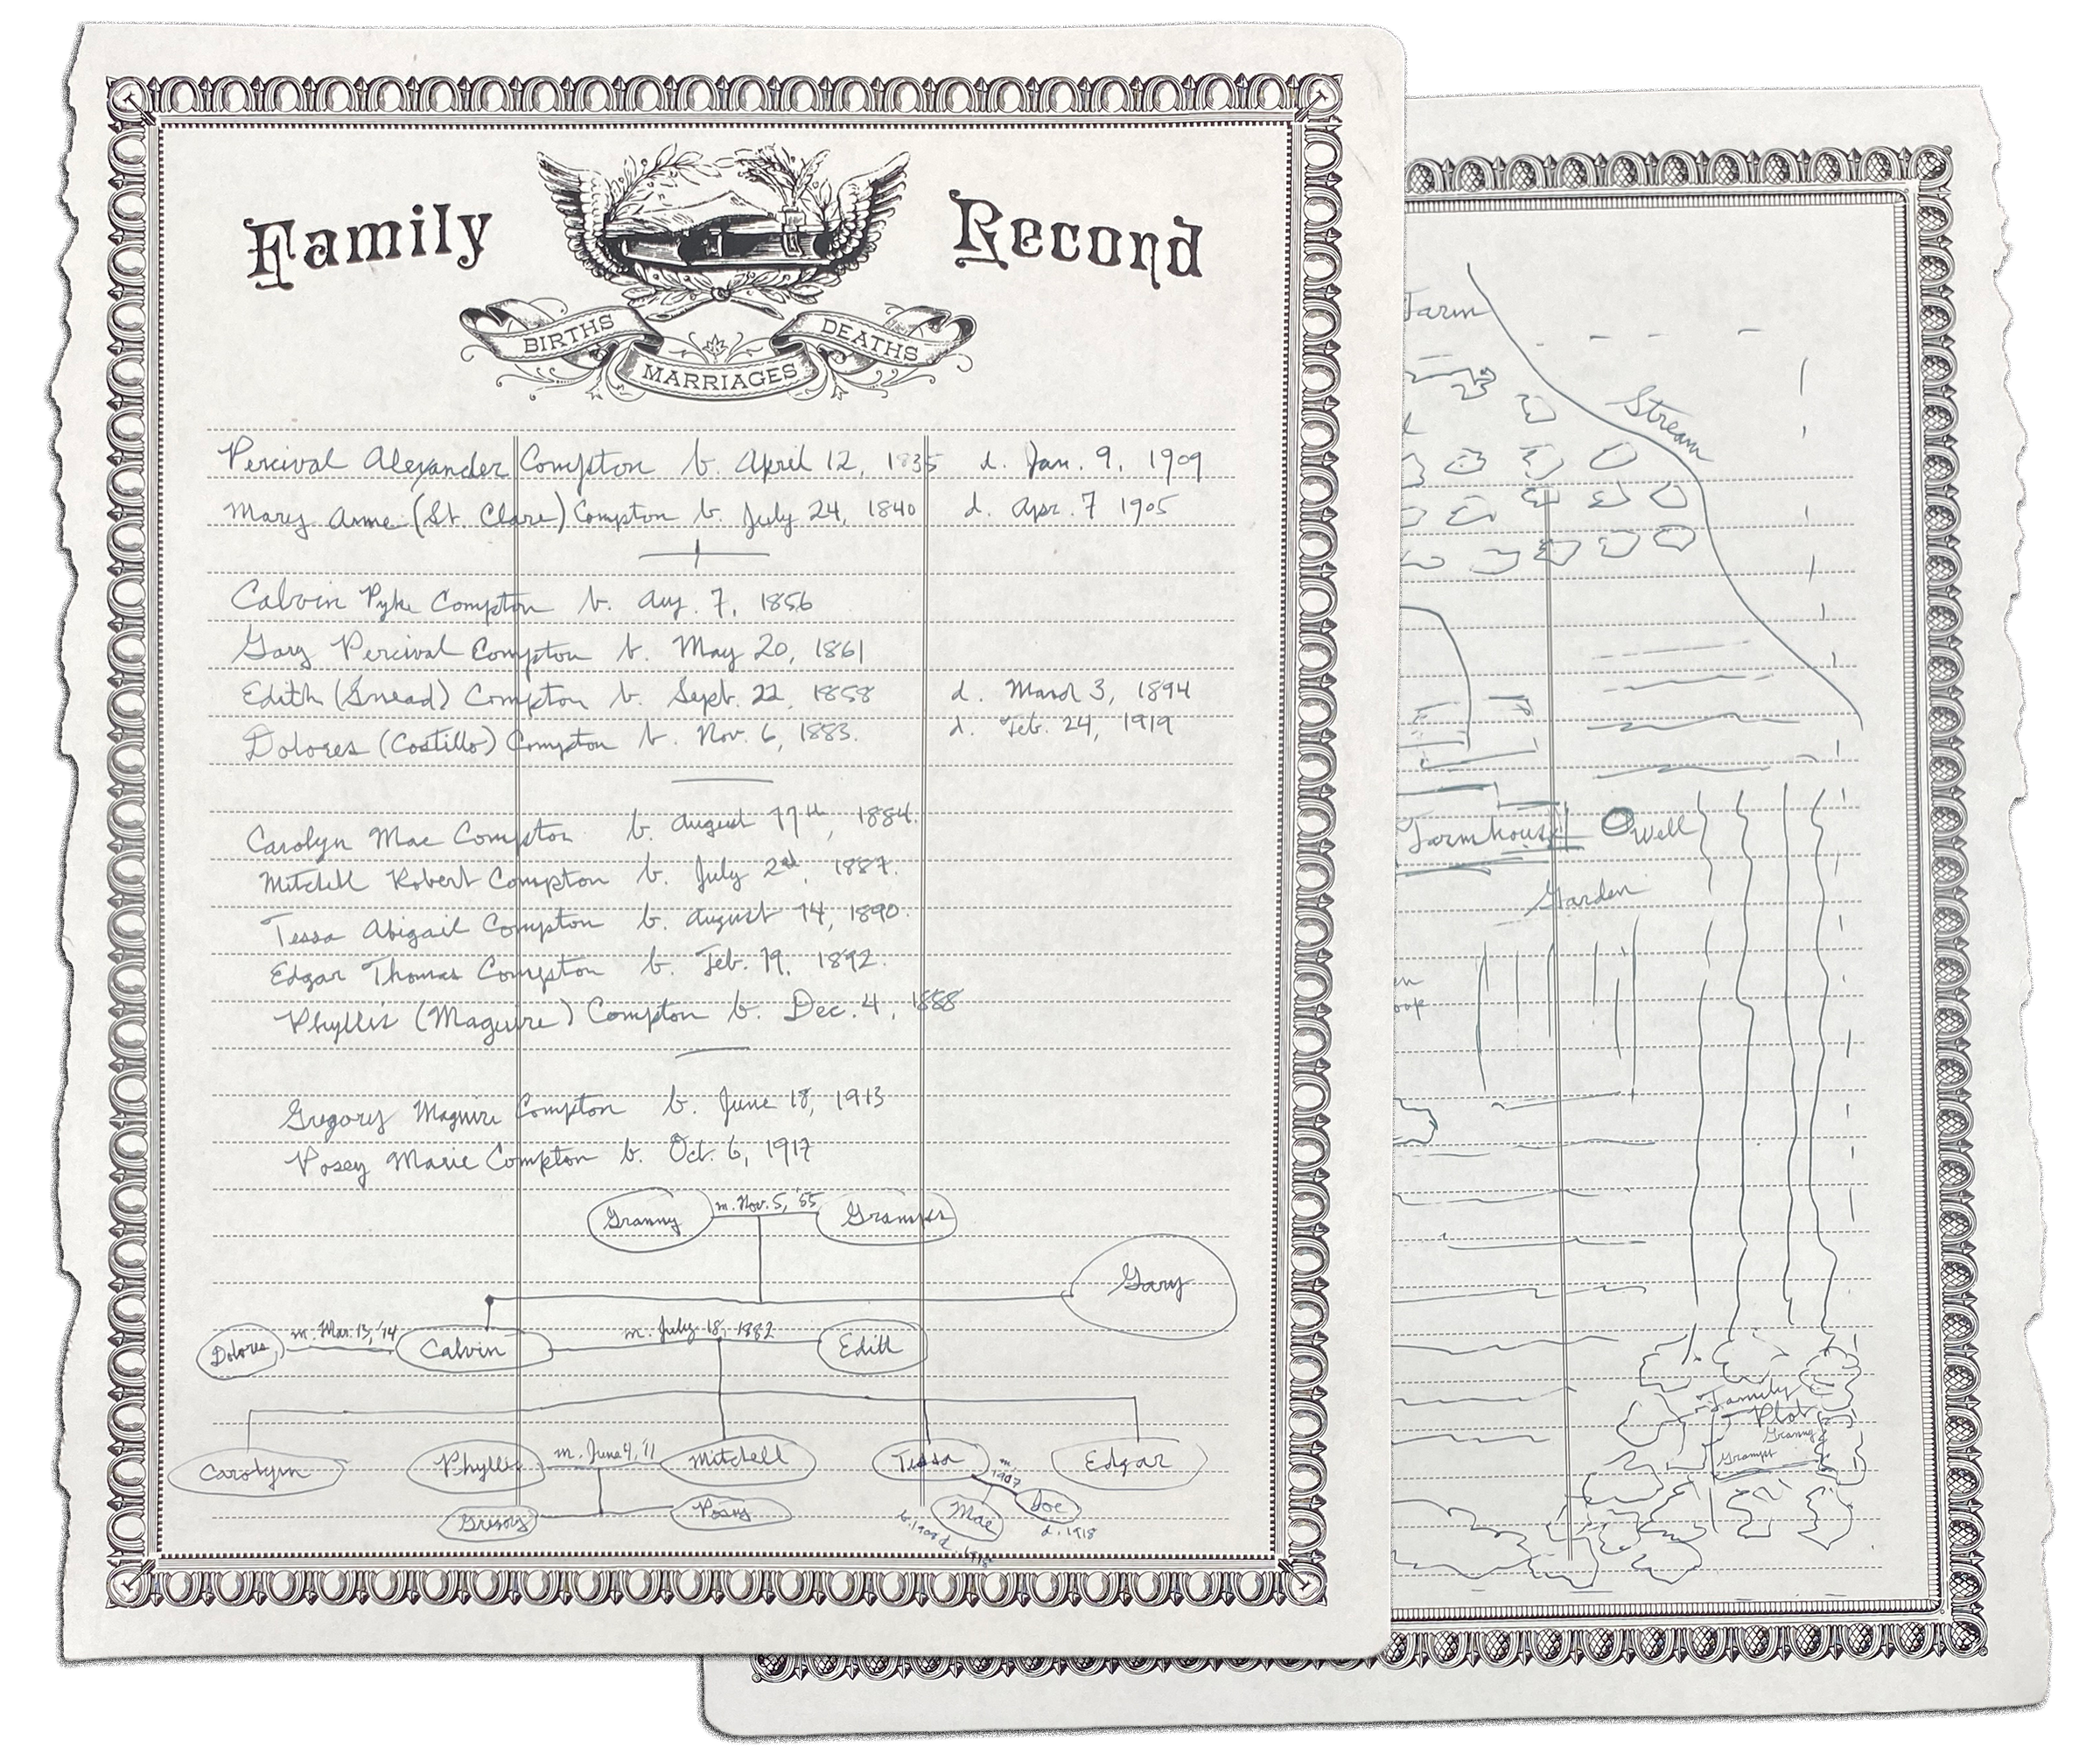 Family Record
BIRTHS
MARRIAGES
DEATHS
Percival Alexander Compton b. April 12, 1835 d. Jan. 9, 1909
Mary Anne (St. Clare) Compton b. July 24, 1840 d. Apr. 7 1905
Calvin Pyke Compton b. Aug. 7, 1856
Gary Percival Compton b. May 20, 1861
Edith (Snead) Compton b. Sept. 22, 1858 d. March 3, 1894
Dolores (Costillo) Compton b. Nov. 6, 1883. d. Feb. 24, 1919
Carolyn Mae Compton b. August 17th, 1884.
Mitchell Robert Compton b. July 2nd, 1887.
Tessa Abigail Compton b. August 14, 1890.
Edgar Thomas Compton b. Feb. 19, 1892.
Phyllis (Maguire) Compton b. Dec. 4, 1888
Gregory Maguire Compton b. June 18, 1913
Posey Marie Compton b. Oct. 6, 1917
Granny m. Nov. 5, '55 Gramps
Gary
Dolores m. Mar. 13, '14 Calvin m. July 18, 1882 Edith
Carolyn Phyllis m. June 4, '11 Mitchell Tessa Edgar
m 1907
Gregory Posey Mae Joe
b. 1908 d. 1918
d. 1918
Farm
Stream
Farmhouse Well
Garden
en
oop
Family
Plot
Granny
Gramps